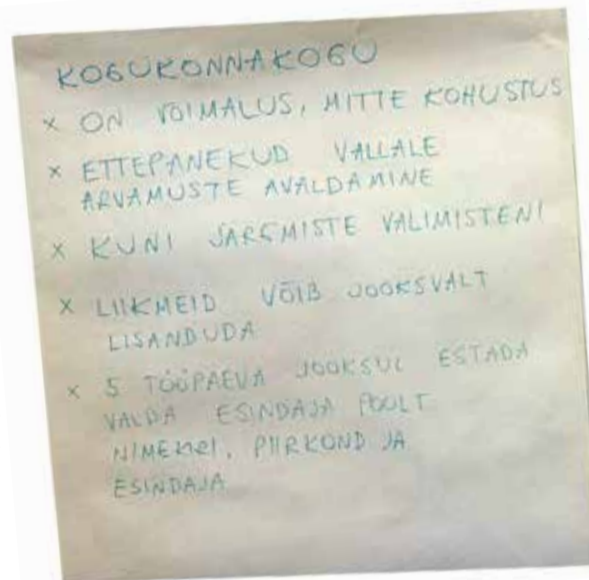 KOGUKONNAKOGU
× ON VÕIMALUS, MITTE KOHUSTUS
× ETTEPANEKUD VALLALE
ARVAMUSTE AVALDAMINE
× KUNI JÄRGMISTE VALIMISTENI
× LIIKMEID VÕIB JOOKSVALT
LISANDUDA
× 5 TÖÖPÄEVA JOOKSUL ESTADA
VALDA ESINDAJA POOLT
NIMEKIRI, PIIRKOND JA
ESINDAJA